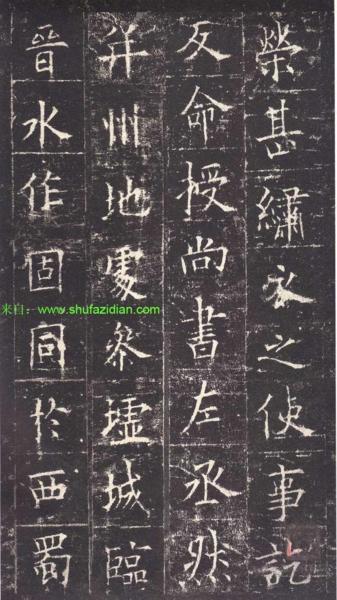 榮甚繡衣之使事訖
反命授尚書左丞然
并州地處參墟城臨
晉水作固同於西蜀
来自：www.shufazidian.com